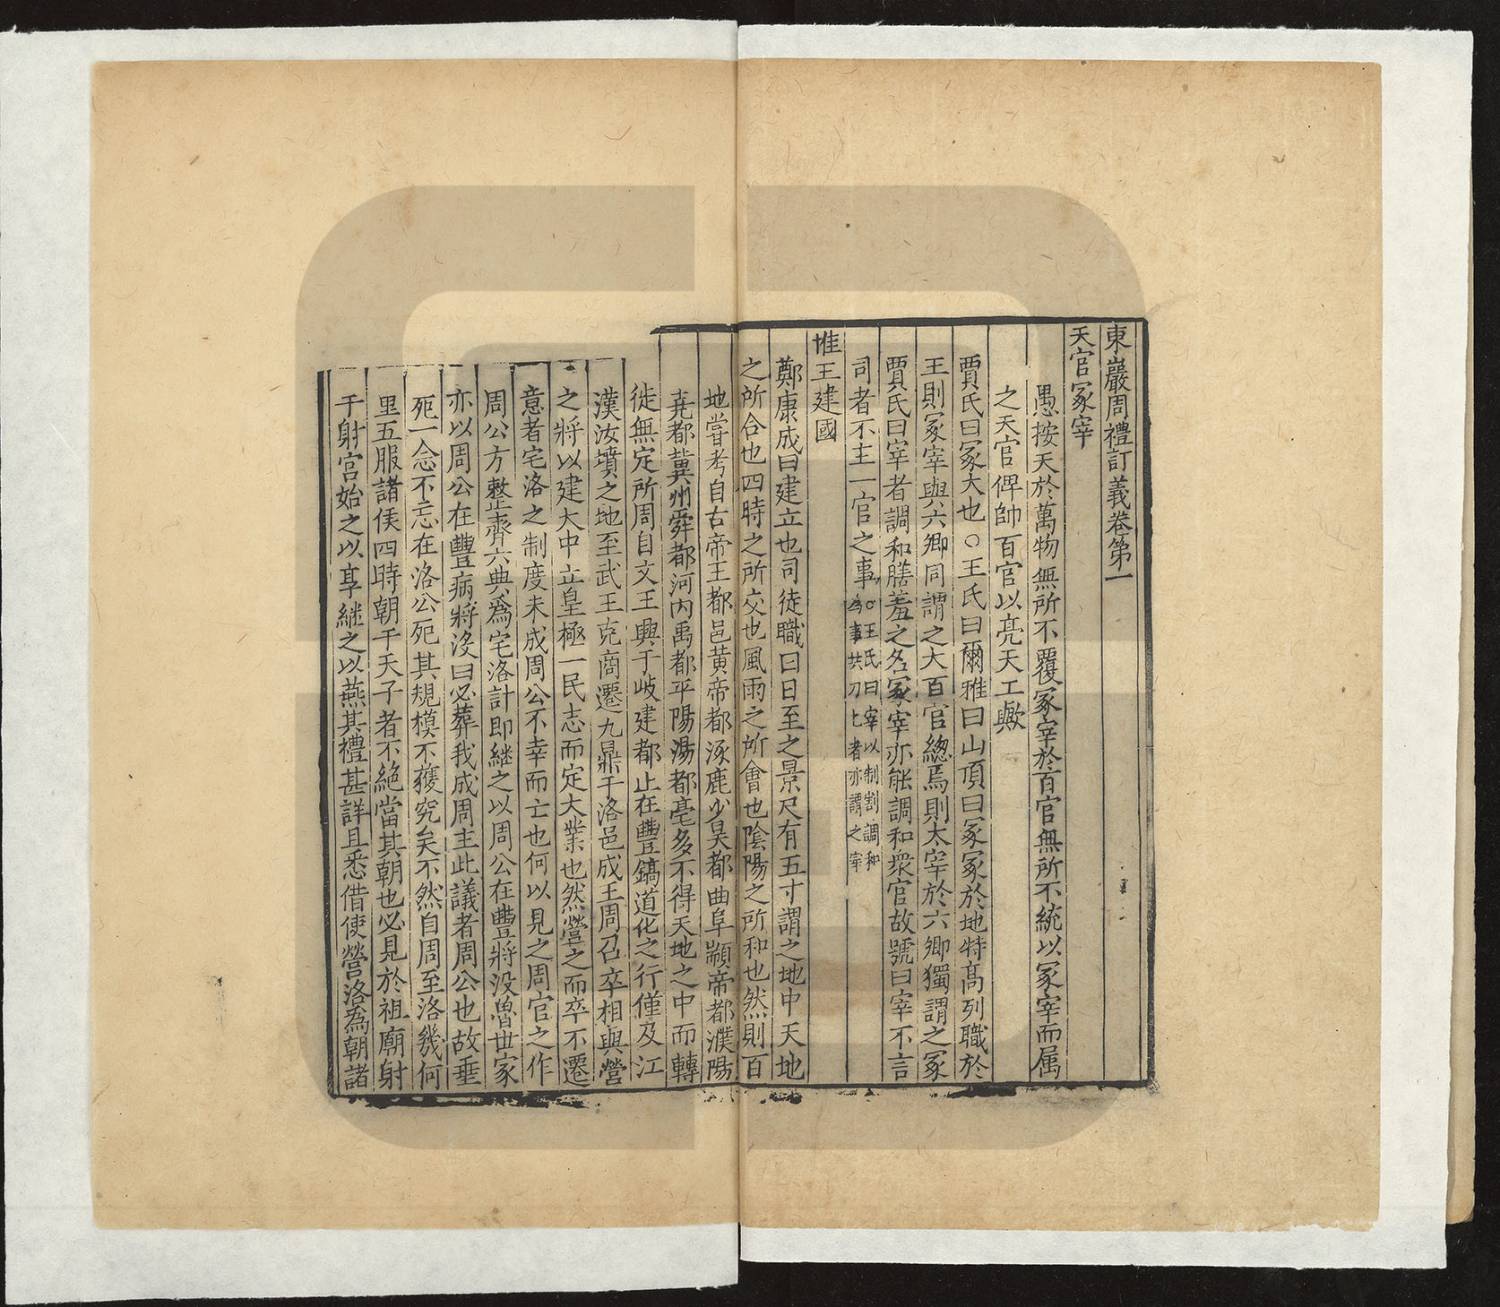 東巖周禮訂義卷第一
天官冢宰
愚按天於萬物無所不覆冢宰於百官無所不統以冢宰而属
之天官俾帥百官以亮天工歟
賈氏曰冢大也○王氏曰爾雅曰山頂曰冢冢於地特高列職於
王則冢宰與六卿同謂之大百官緫焉則太宰於六卿獨謂之冢
賈氏曰宰者調和膳羞之名冢宰亦能調和衆官故號曰宰不言
司者不主一官之事○王氏曰宰以制割調和為事共刀匕者亦謂之宰
惟王建國
鄭康成曰建立也司徒職曰日至之景尺有五寸謂之地中天地
之所合也四時之所交也風雨之所會也陰陽之所和也然則百
地嘗考自古帝王都邑黄帝都涿鹿少昊都曲阜顓帝都濮陽
堯都冀州舜都河内禹都平陽湯都亳多不得天地之中而轉
徙無定所周自文王興于岐建都止在豐鎬道化之行僅及江
漢汝墳之地至武王克商遷九鼎于洛邑成王周召卒相與營
之將以建大中立皇極一民志而定大業也然營之而卒不遷
意者宅洛之制度未成周公不幸而亡也何以見之周官之作
周公方整齊六典為宅洛計即継之以周公在豐將没魯世家
亦以周公在豐病將没曰必葬我成周主此議者周公也故垂
死一念不忘在洛公死其規模不獲究矣不然自周至洛幾何
里五服諸侯四時朝于天子者不絶當其朝也必見於祖廟射
于射宫始之以享継之以燕其禮甚詳且悉借使營洛為朝諸